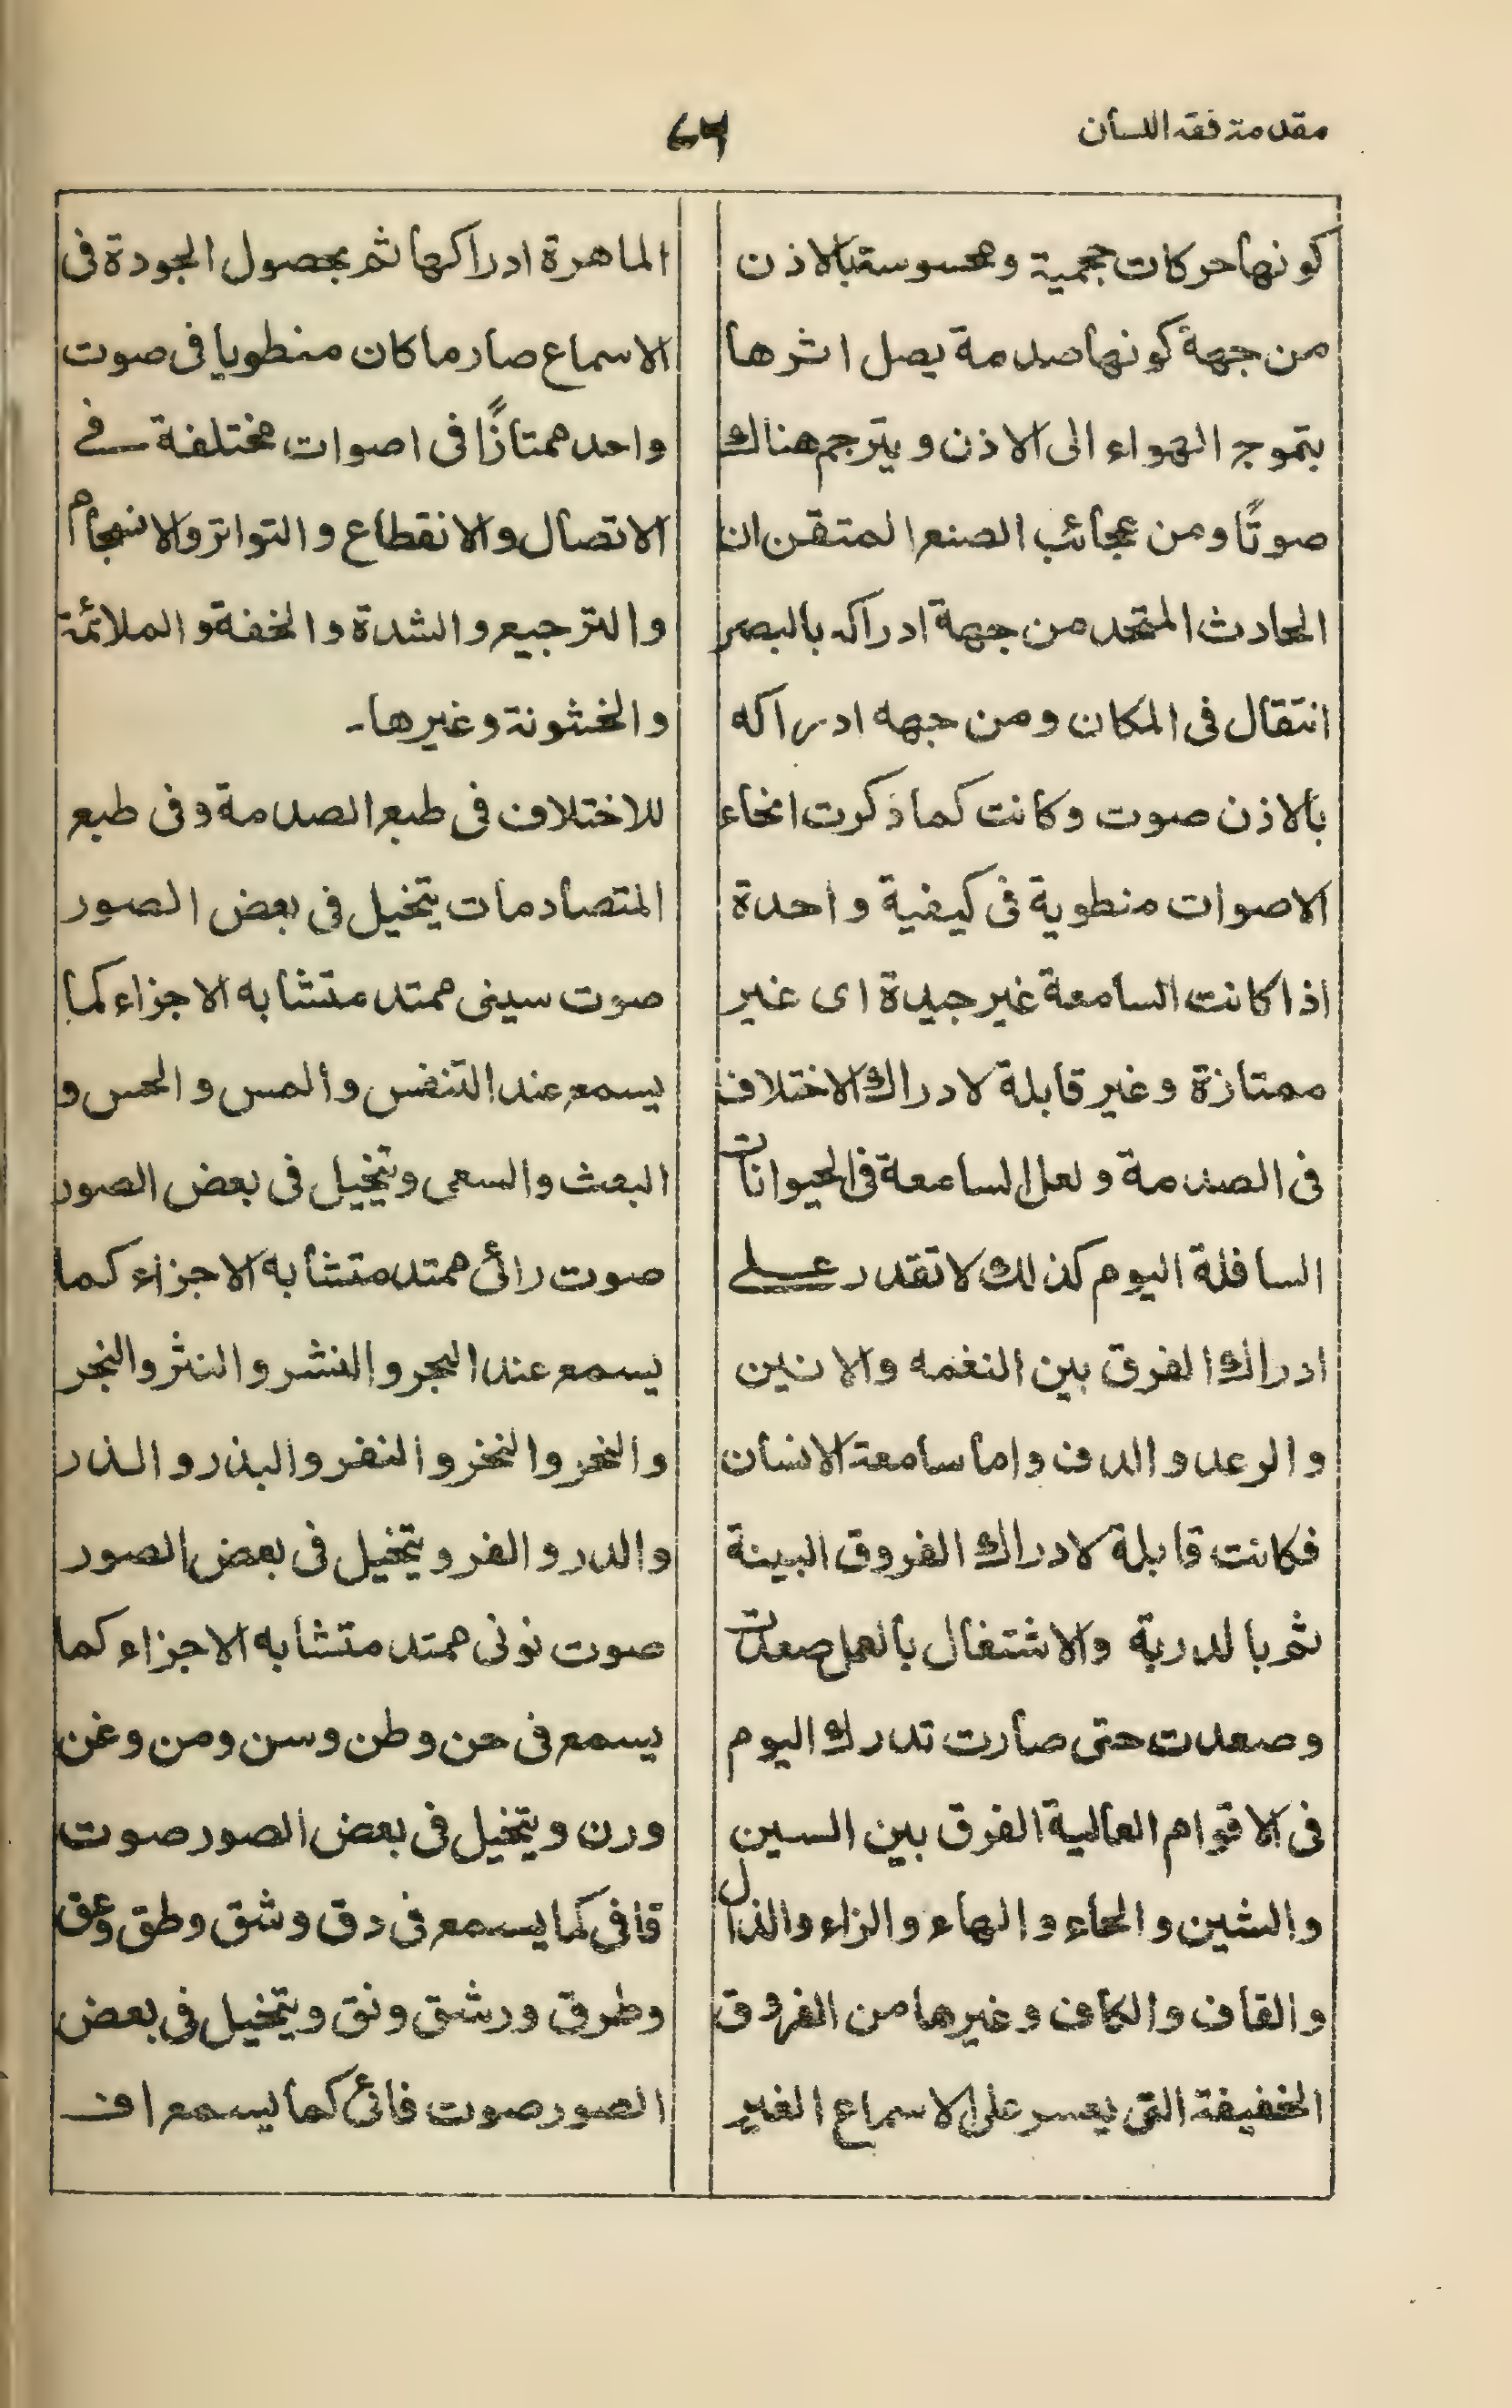 مقدمة فقه اللسان
كونها حركات حجمية ومحسوسة بالاذن
من جهة كونها صدمة يصل اثرها
بتموج الهواء الى الاذن ويترجم هناك
صوتًا ومن عجائب الصنع المتقن ان
الحادث المتحد من جهة ادراكه بالبصر
انتقال فى المكان ومن جهه ادراكه
بالاذن صوت وكانت كما ذكرت انحاء
الاصوات منطوية فى كيفية واحدة
اذا كانت السامعة غير جيدة اى غير
ممتازة وغير قابلة لادراك الاختلاف
فى الصدمة ولعل السامعة فى الحيوانات
السافلة اليوم كذلك لا تقدر على
ادراك الفرق بين النغمه والانين
والرعد والدف واما سامعة الانسان
فكانت قابلة لادراك الفروق البينة
ثم بالدربة والاشتغال بالعمل صعدت
وصعدت حتى صارت تدرك اليوم
فى الاقوام العالية الفرق بين السين
والشين والحاء والهاء والزاء والذال
والقاف والكاف وغيرها من الفروق
الخفيفة التى يعسر على الاسماع الغير
الماهرة ادراكها ثم بحصول الجودة فى
الاسماع صار ما كان منطويا فى صوت
واحد ممتازًا فى اصوات مختلفة فى
الاتصال والانقطاع والتواتر والانهجام
والترجيع والشدة والخفة والملائمة
والخشونة وغيرها۔
للاختلاف فى طبع الصدمة وفى طبع
المتصادمات يتخيل فى بعض الصور
صوت سينى ممتد متشابه الاجزاء كما
يسمع عند التنفس والمس والحس و
البعث والسعى ويتخيل فى بعض الصور
صوت رائى ممتد متشابه الاجزاء كما
يسمع عند الجر والنشر والنثر والنجر
والنحر والنخر والنفر والبذر والذر
والدر والفر ويتخيل فى بعض الصور
صوت نونى ممتد متشابه الاجزاء كما
يسمع فى حن وطن وسن ومن وغن
ورن ويتخيل فى بعض الصور صوت
قافى كما يسمع فى دق وشق وطق وعق
وطرق ورشق ونق ويتخيل فى بعض
الصور صوت فائى كما يسمع اف